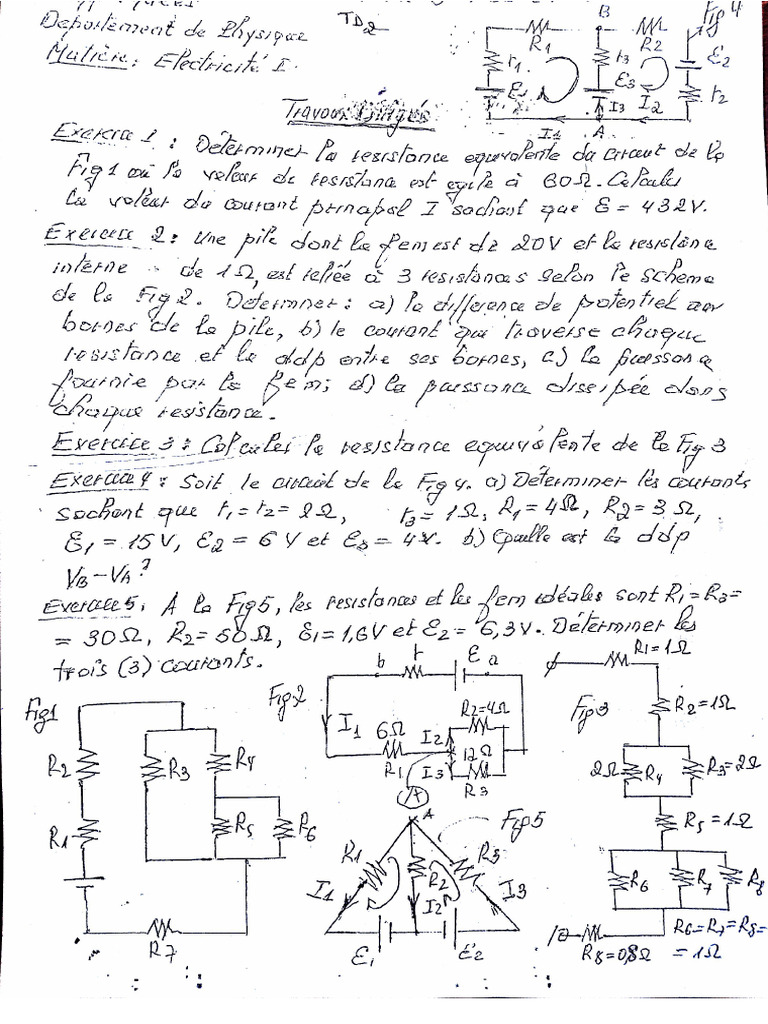 Departement de Physique
TD2
Fig 4
Matière: Electricité I.
B
R1
R2
r1
r3
E1
E3
E2
r2
I1
I3
I2
A
Travaux Dirigés
Exercice 1: Déterminer la resistance equivalente du circuit de la
Fig 1 où la valeur de resistance est egale à 60Ω. Calculer
la valeur du courant principal I sachant que E = 432V.
Exercice 2: Une pile dont la fem est de 20V et la resistance
interne de 1Ω, est reliée à 3 resistances selon le schema
de la Fig 2. Determiner: a) la difference de potentiel aux
bornes de la pile, b) le courant qui traverse chaque
resistance et la ddp entre ses bornes, c) la puissance
fournie par la fem; d) la puissance dissipée dans
chaque resistance.
Exercice 3: Calculer la resistance equivalente de la Fig 3
Exercice 4: Soit le circuit de la Fig 4. a) Déterminer les courants
sachant que r1 = r2 = 2Ω, r3 = 1Ω, R1 = 4Ω, R2 = 3Ω,
E1 = 15V, E2 = 6V et E3 = 4V. b) Quelle est la ddp
VB-VA?
Exercice 5. A la Fig 5, les resistances et les fem idéales sont R1 = R3 =
= 30Ω, R2 = 50Ω, E1 = 1,6V et E2 = 6,3V. Déterminer les
trois (3) courants.
Fig1
R2
R1
R3
R4
R5
R6
R7
Fig2
b
r
E
a
I1
6Ω
R1
I2
I3
R2=4Ω
12Ω
R3
A
Fig 3
R1=1Ω
R2=1Ω
2Ω
R4
R3=2Ω
R5=1Ω
R6
R7
R8
R6=R7=R8=
R8=0,8Ω
=1Ω
A
Fig5
R1
R2
R3
I1
I2
I3
E1
E2